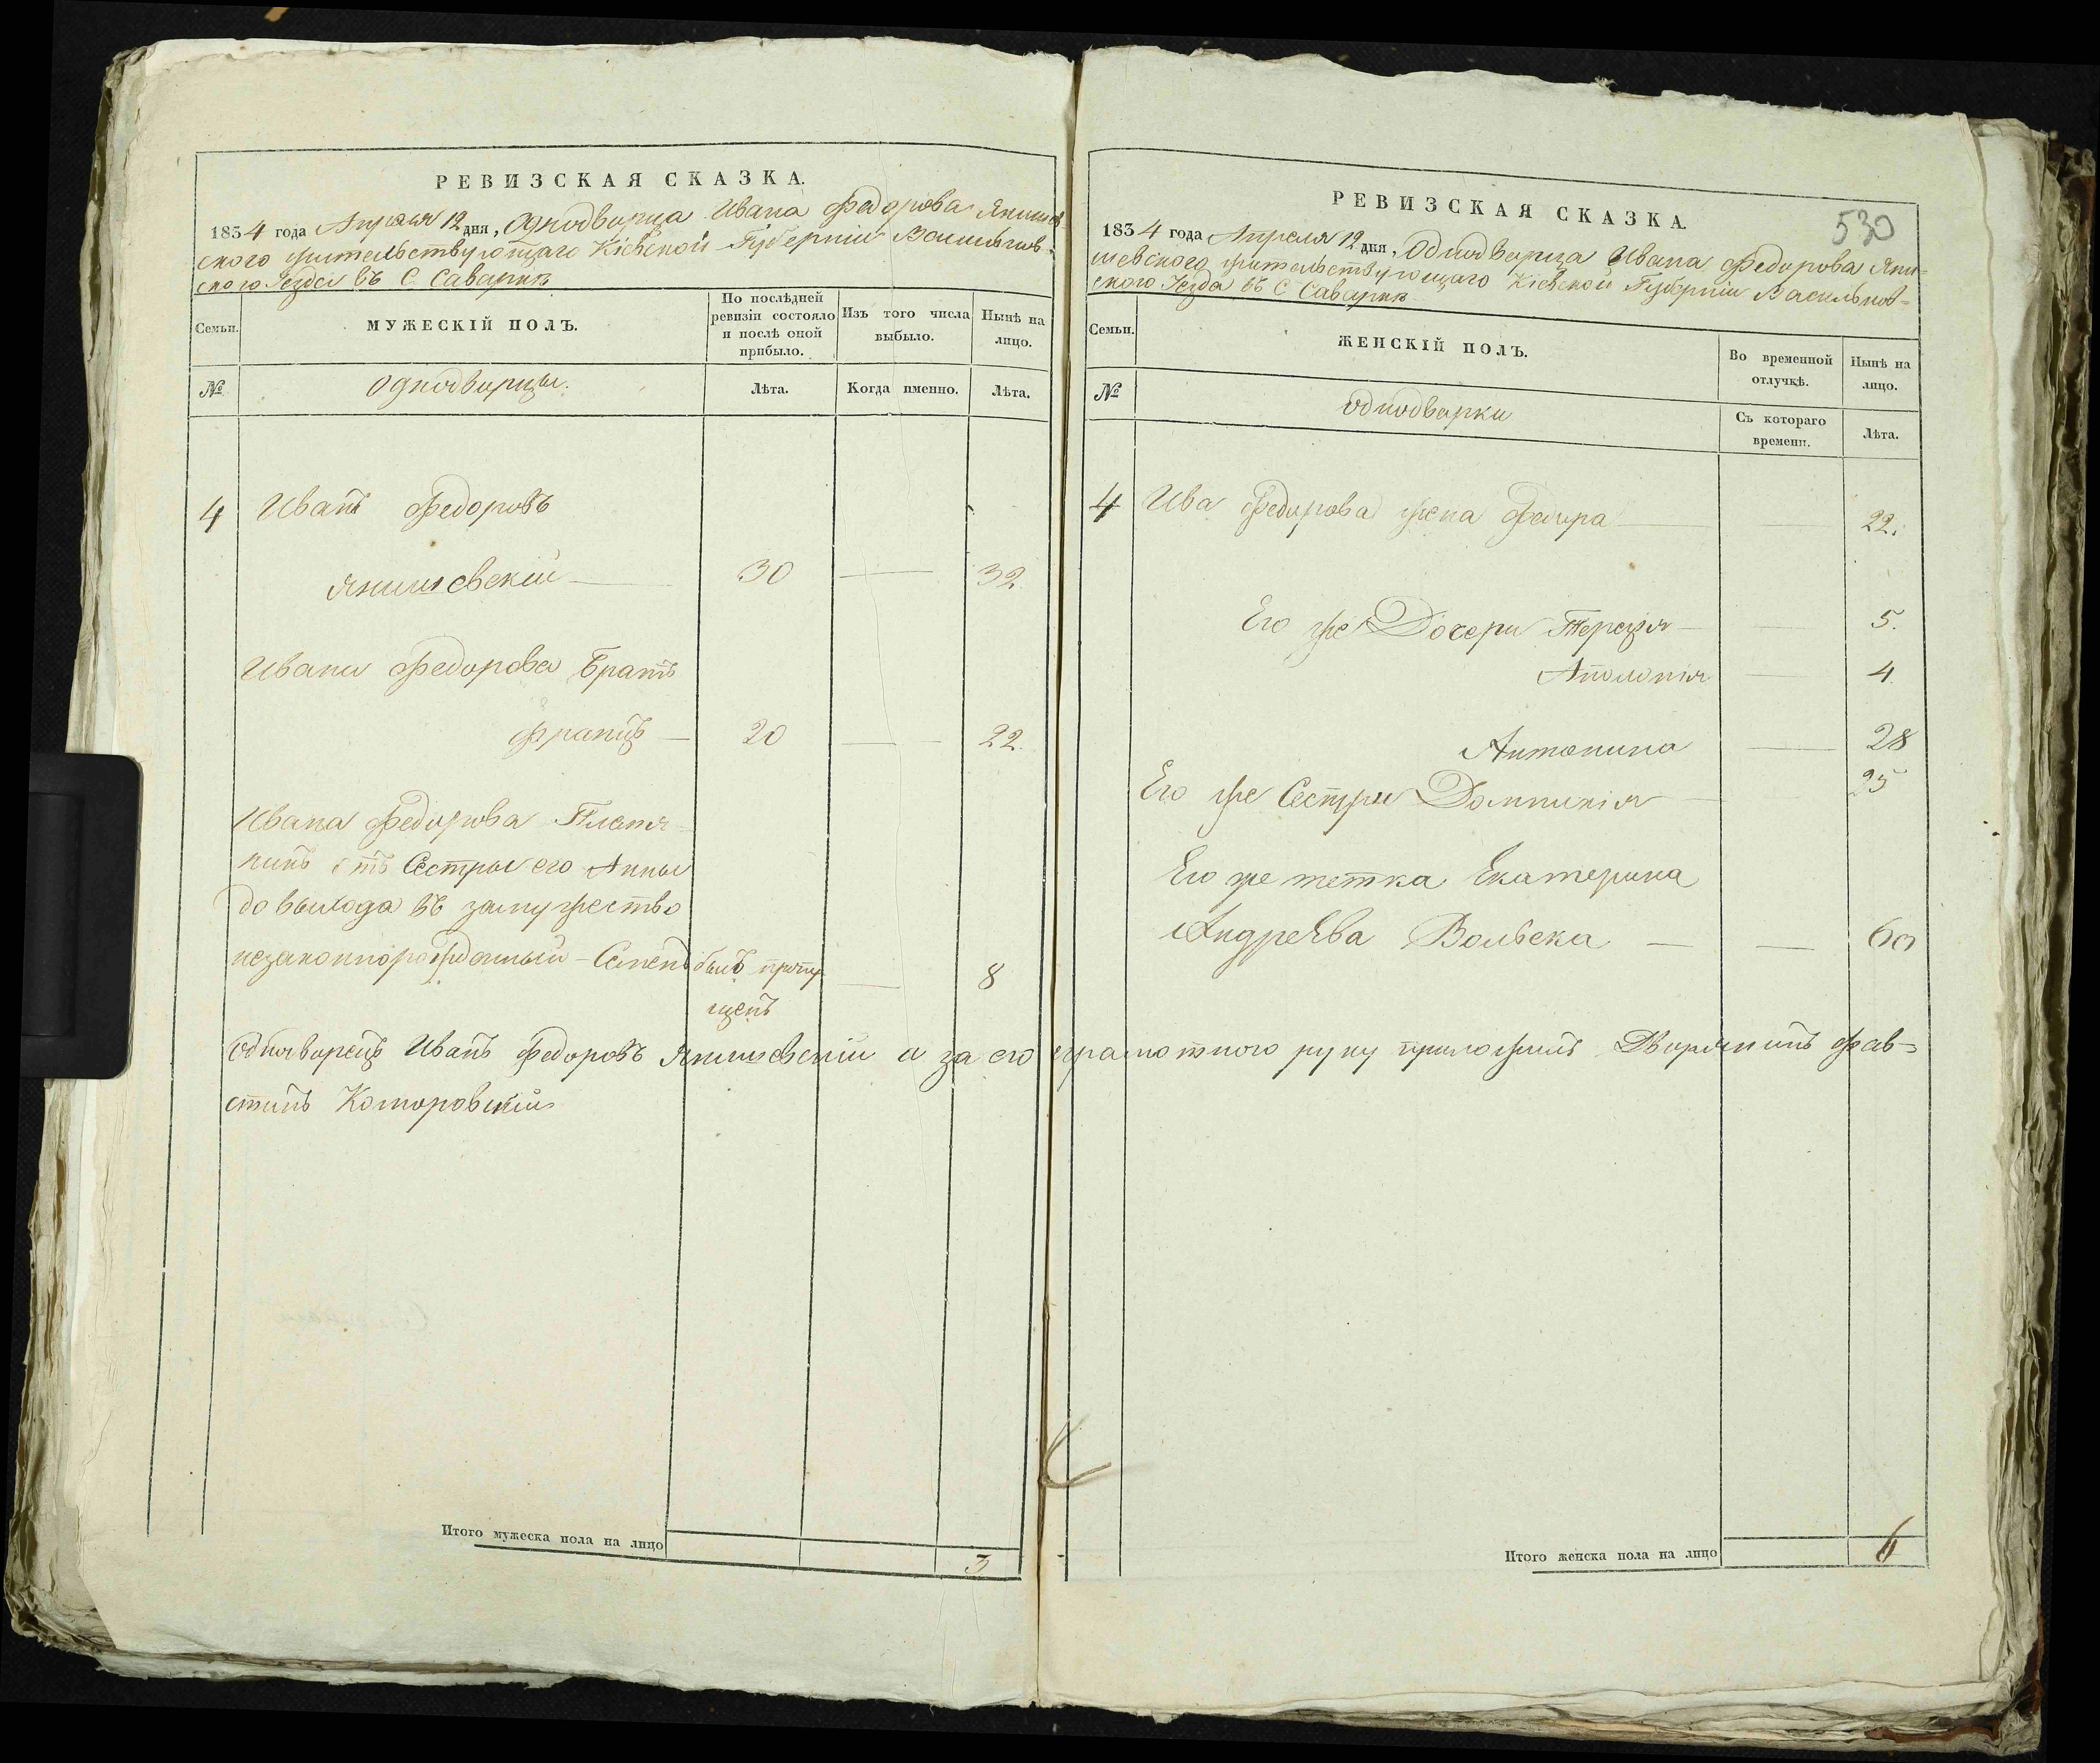 РЕВИЗСКАЯ СКАЗКА.
1834 года Апреля 12 дня, Однодворца Ивана Федорова Янишев-
ского жительствующаго Кіевской Губерніи Васильков-
ского Уезда въ С. Саварке
Семьи.
МУЖЕСКІЙ ПОЛЪ.
По послѣдней ревизіи состояло и послѣ оной прибыло.
Изъ того числа выбыло.
Нынѣ на лицо.
№
Однодворцы.
Лѣта.
Когда именно.
Лѣта.
4 Иванъ Федоровъ
Янишевскій — 30 — 32
Ивана Федорова Братъ
Францъ — 20 — 22.
Ивана Федорова Племя-
никъ отъ Сестры его Анны
до выхода въ замужество
незаконнорожденный – Семенъ былъ пропу- — 8
щенъ
Однодворецъ Иванъ Федоровъ Янишевскій а за его неграмотного руку приложилъ Дворянинъ Фав-
стинъ Коморовскій
Итого мужеска пола на лицо 3
530
РЕВИЗСКАЯ СКАЗКА.
1834 года Апреля 12 дня, Однодворца Ивана Федорова Яни-
шевского жительствующаго Кіевской Губерніи Васильков-
ского Уезда въ С Саварке
Семьи.
ЖЕНСКІЙ ПОЛЪ.
Во временной отлучкѣ.
Нынѣ на лицо.
№
Однодворки
Съ котораго времени.
Лѣта.
4 Ива Федорова жена Федора — 22.
Его же Дочери Терезія — 5.
Аполонія — 4.
Антонина — 28
Его же Сестри Домникія — 25
Его же тетка Екатерина
Андреева Вольска — — 60
Итого женска пола на лицо 6